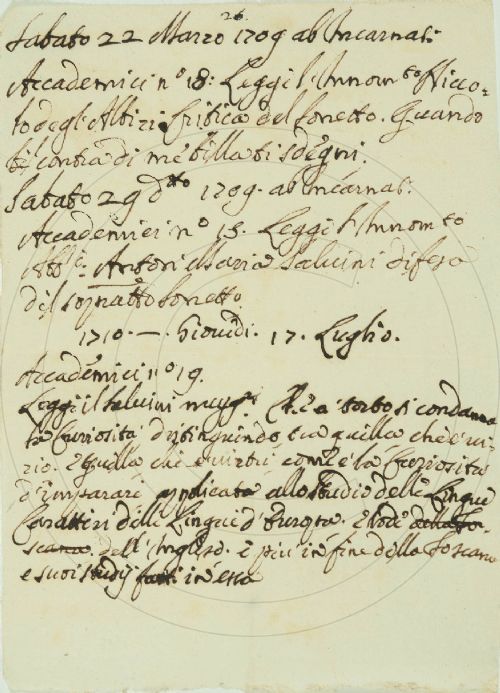 26.
Sabato 22 Marzo 1709 ab Incarnat:
Accademici n° 18: Leggi l'Innom.to Nicco=
lo degl'Albizi Critica del sonetto. Quando
contra di me sdegni.
Sabato 29 d.tto 1709. ab Incarnat:
Accademici n° 15. Leggi l'Innom.to
Abb.e Anton Maria Salvini difesa
del sopra.tto sonetto
1710. — Giovedi. 17. Luglio.
Accademici n° 19.
Leggi il Salvini a torto si condanna
la Curiosità distinguendo tra quella che è vi-
zio. e quella che è virtù come è la Curiosità
d'imparare applicata allo studio delle Lingue
Caratteri delle Lingue d'Europa. e lode della To-
scana. dell'Inglese. e più in fine della Toscana
e suoi studij fatti in essa